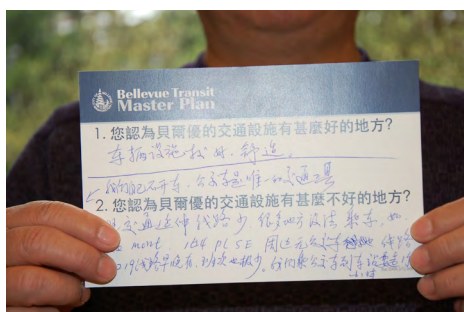 Bellevue Transit
Master Plan
1. 您認為貝爾優的交通設施有甚麼好的地方?
车辆设施较好,舒适。
我们自己不开车,公交车是唯一的交通工具
2. 您認為貝爾優的交通設施有甚麼不好的地方?
公交通延伸线路少,很多地方没法乘车,如
mont 164 PL SE 周边无公交车 线路
线路早晚有,班次也很少。我们乘公交车到车站要走15